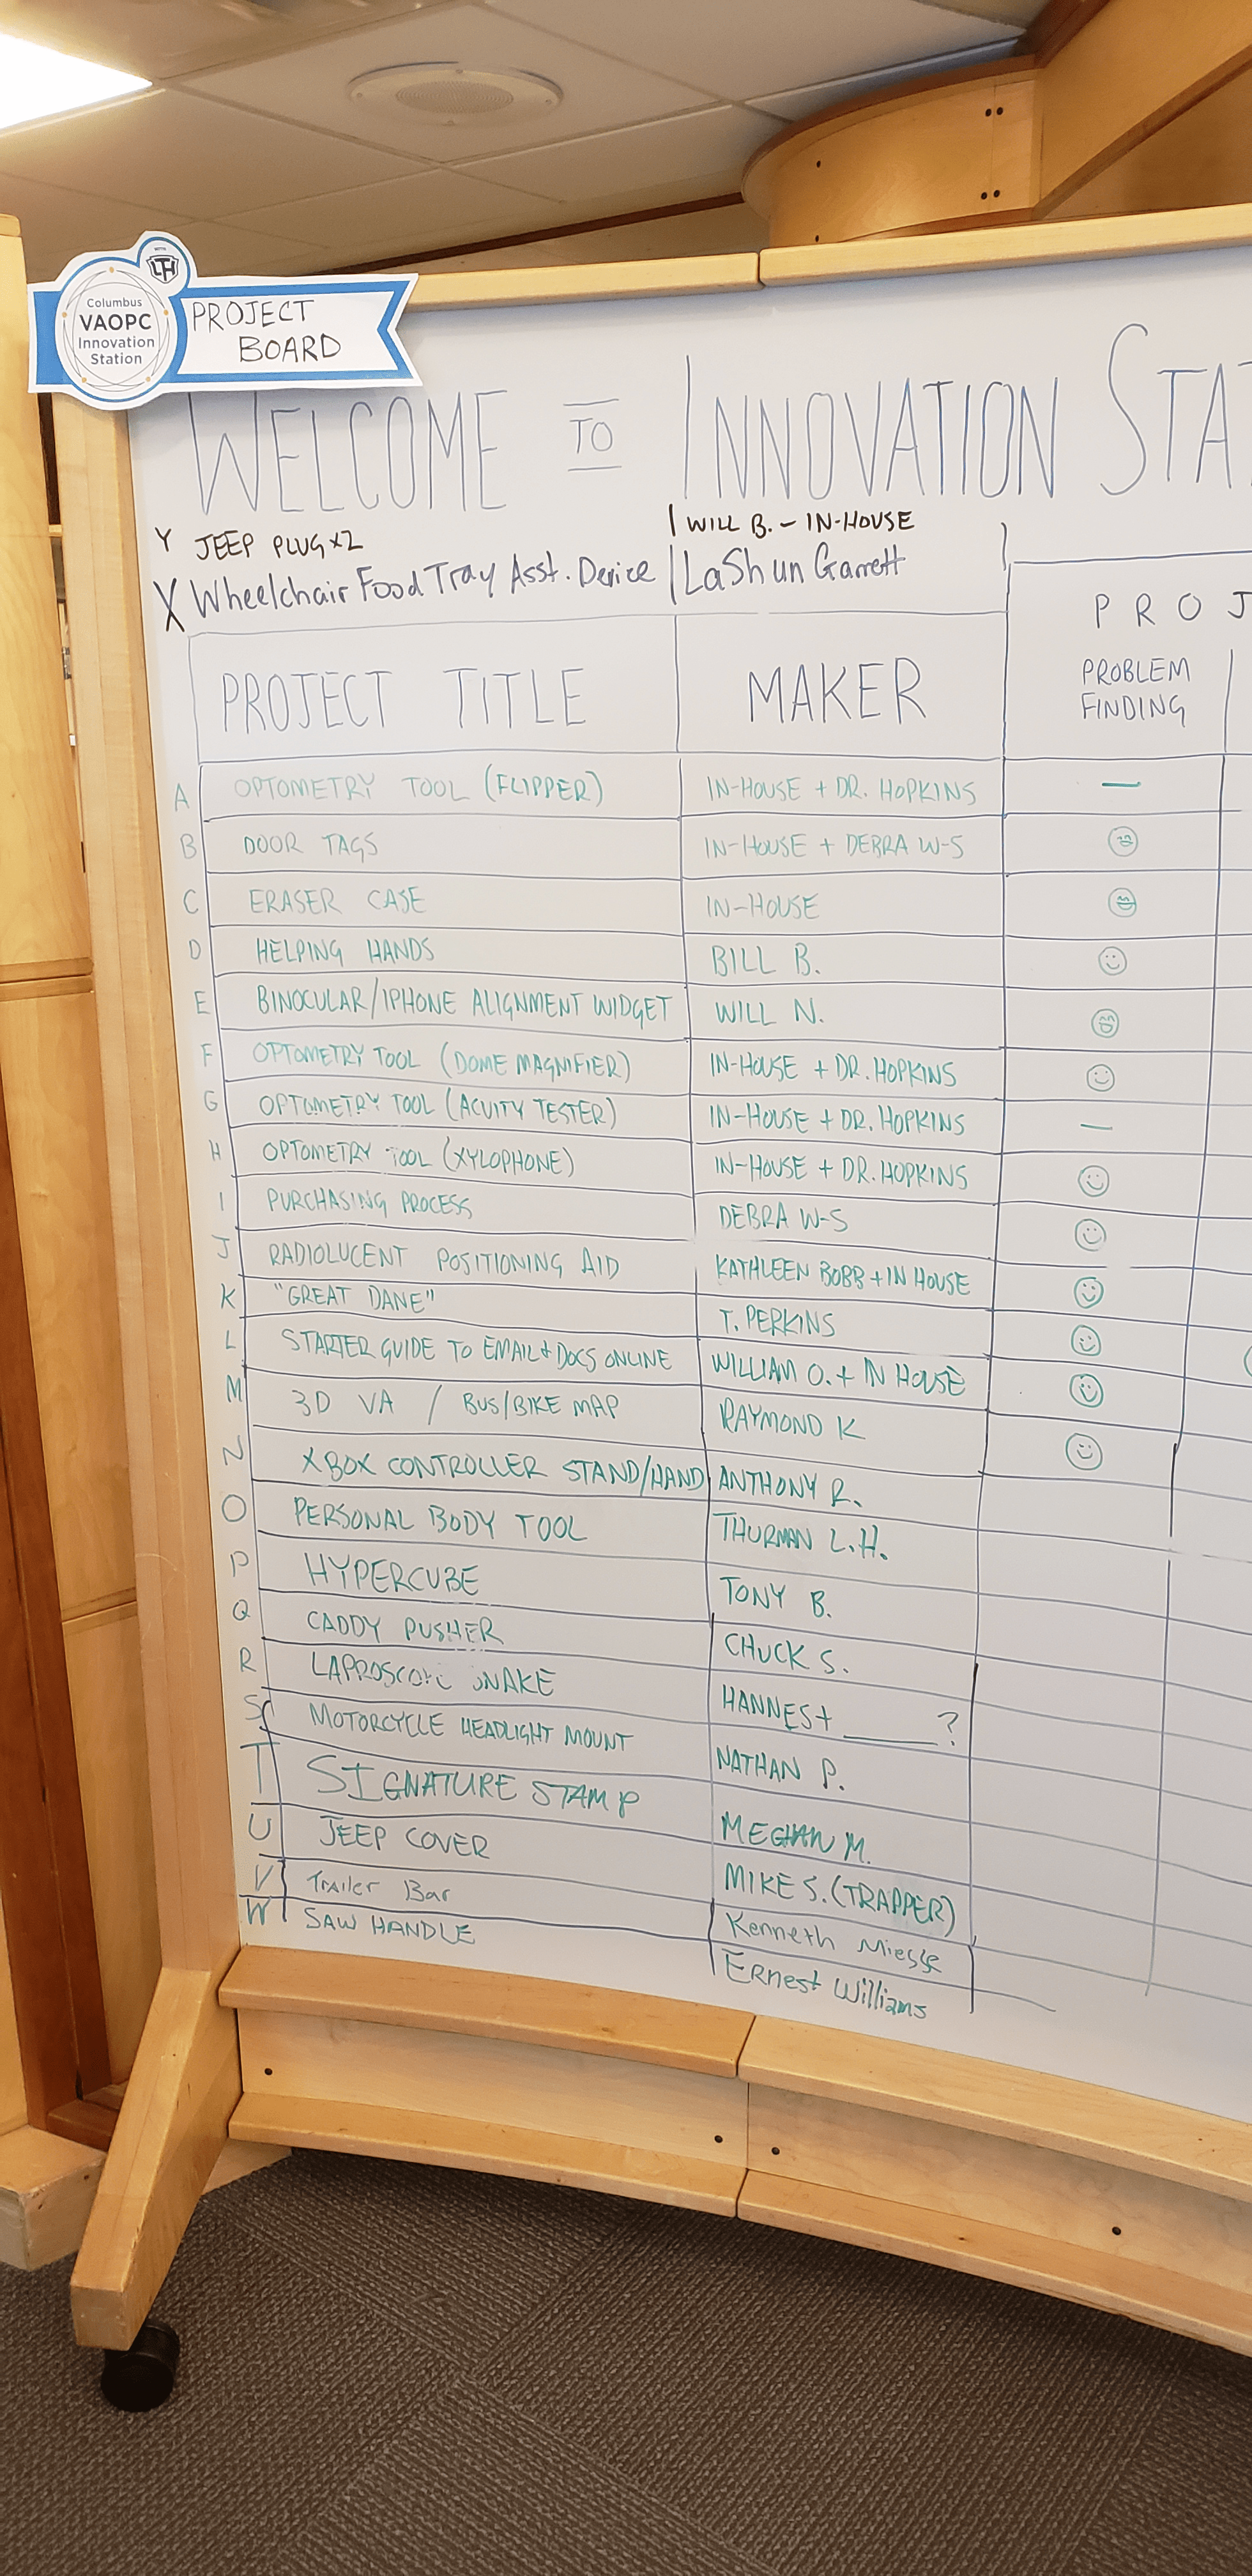 Columbus
VAOPC
Innovation
Station
PROJECT
BOARD
WELCOME TO INNOVATION STA
Y JEEP PLUG x2 WILL B. - IN-HOUSE
X Wheelchair Food Tray Asst. Device LaShun Garrett
PROJ
PROJECT TITLE MAKER PROBLEM
FINDING
A OPTOMETRY TOOL (FLIPPER) IN-HOUSE + DR. HOPKINS —
B DOOR TAGS IN-HOUSE + DEBRA W-S
C ERASER CASE IN-HOUSE
D HELPING HANDS BILL B.
E BINOCULAR/IPHONE ALIGNMENT WIDGET WILL N.
F OPTOMETRY TOOL (DOME MAGNIFIER) IN-HOUSE + DR. HOPKINS
G OPTOMETRY TOOL (ACUITY TESTER) IN-HOUSE + DR. HOPKINS —
H OPTOMETRY TOOL (XYLOPHONE) IN-HOUSE + DR. HOPKINS
I PURCHASING PROCESS DEBRA W-S
J RADIOLUCENT POSITIONING AID KATHLEEN BOBB + IN HOUSE
K "GREAT DANE" T. PERKINS
L STARTER GUIDE TO EMAIL + DOCS ONLINE WILLIAM O. + IN HOUSE
M 3D VA / BUS/BIKE MAP RAYMOND K
N XBOX CONTROLLER STAND/HAND ANTHONY R.
O PERSONAL BODY TOOL THURMAN L.H.
P HYPERCUBE TONY B.
Q CADDY PUSHER CHUCK S.
R LAPROSCOPIC SNAKE HANNES + ______ ?
S MOTORCYCLE HEADLIGHT MOUNT NATHAN P.
T SIGNATURE STAMP MEGHAN M.
U JEEP COVER MIKE S. (TRAPPER)
V Trailer Bar Kenneth Miesse
W SAW HANDLE Ernest Williams